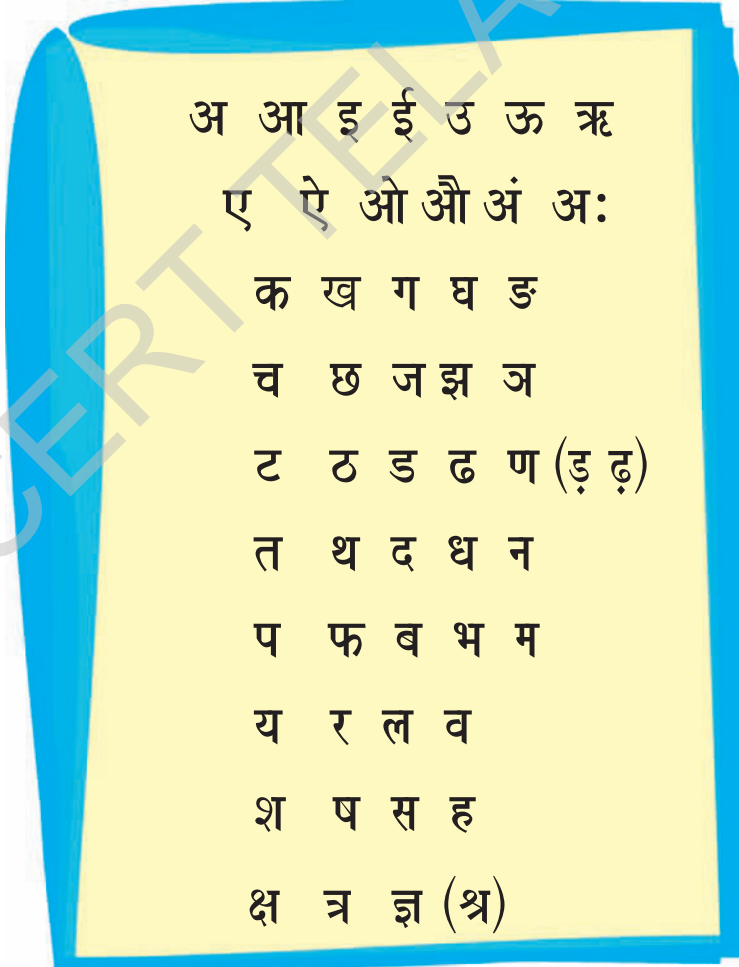 अ आ इ ई उ ऊ ऋ
ए ऐ ओ औ अं अः
क ख ग घ ङ
च छ ज झ ञ
ट ठ ड ढ ण (ड़ ढ़)
त थ द ध न
प फ ब भ म
य र ल व
श ष स ह
क्ष त्र ज्ञ (श्र)
CERT TELA